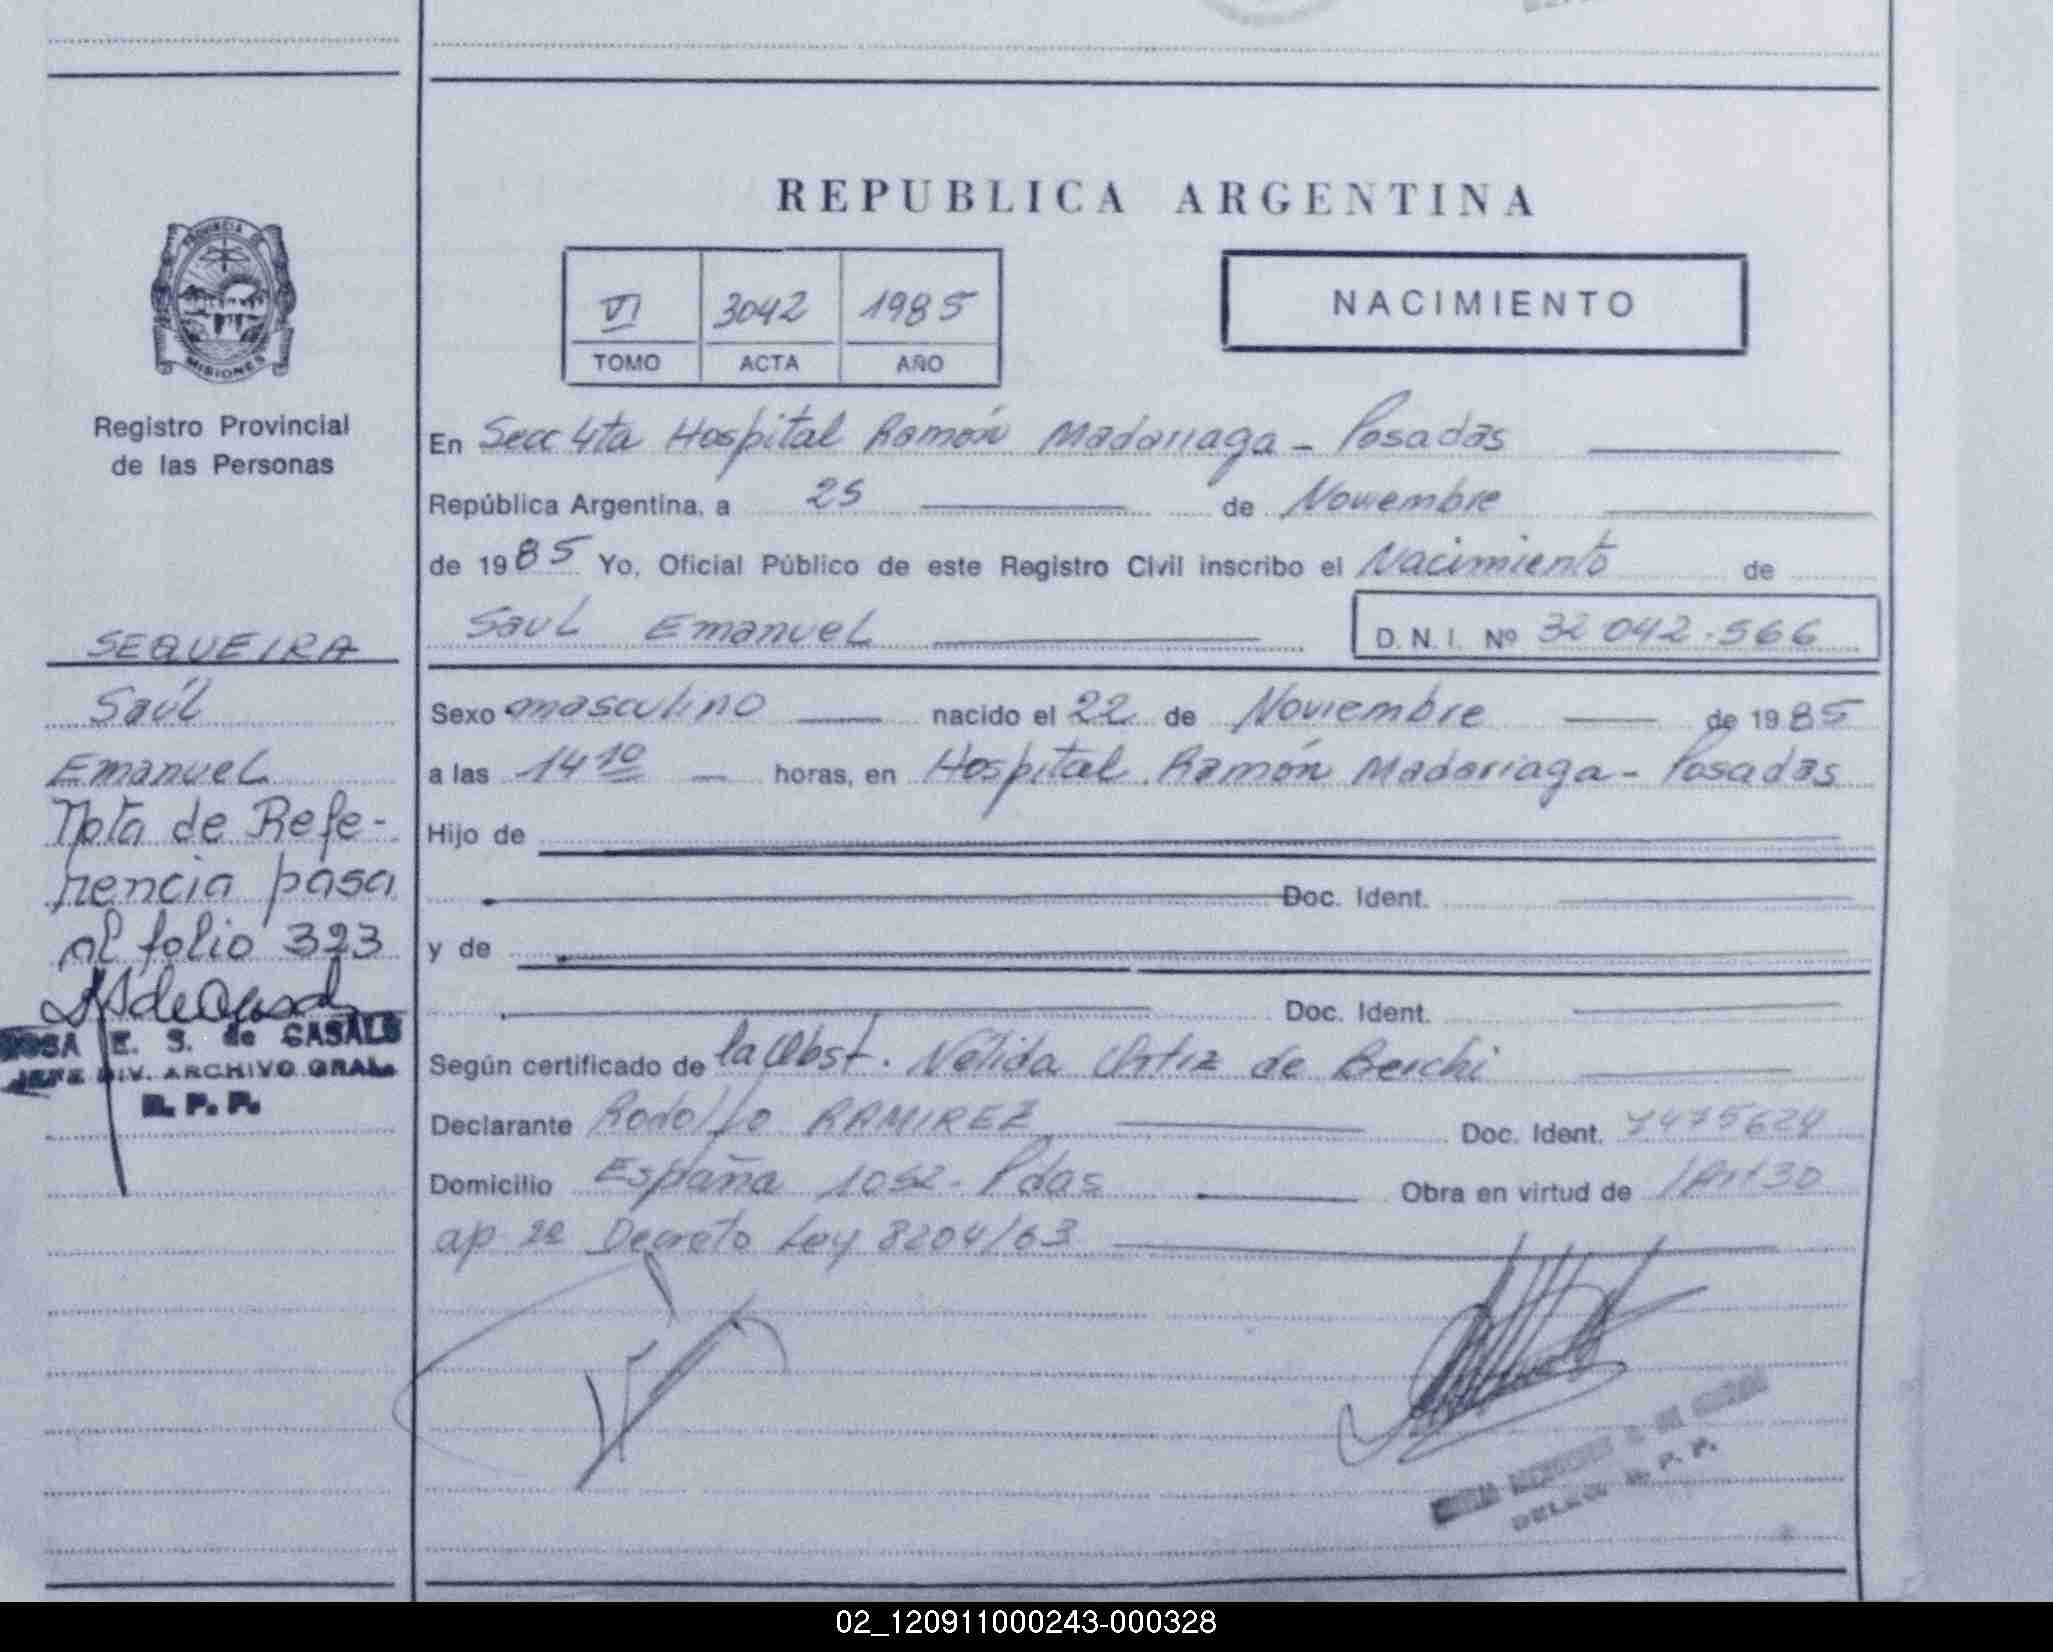 REPUBLICA ARGENTINA
VI 3042 1985
TOMO ACTA AÑO
NACIMIENTO
PROVINCIA DE
MISIONES
Registro Provincial
de las Personas
SEQUEIRA
Saúl
Emanuel
Nota de Refe-
rencia pasa
al folio 323
E. S. de CASALS
JEFE DIV. ARCHIVO GRAL.
R. P. P.
En Secc 4ta Hospital Ramón Madariaga - Posadas
República Argentina, a 25 de Noviembre
de 1985 Yo, Oficial Público de este Registro Civil inscribo el Nacimiento de
Saul Emanuel D. N. I. Nº 32 042.566
Sexo masculino nacido el 22 de Noviembre de 1985
a las 14 10 horas, en Hospital Ramón Madariaga - Posadas
Hijo de
Doc. Ident.
y de
Doc. Ident.
Según certificado de la Obst. Nélida Ortiz de Berchi
Declarante Rodolfo RAMIREZ Doc. Ident. 7475624
Domicilio España 1052 - Pdas Obra en virtud de Art 30
ap 2º Decreto Ley 8204/63
R. P. P.
02_120911000243-000328